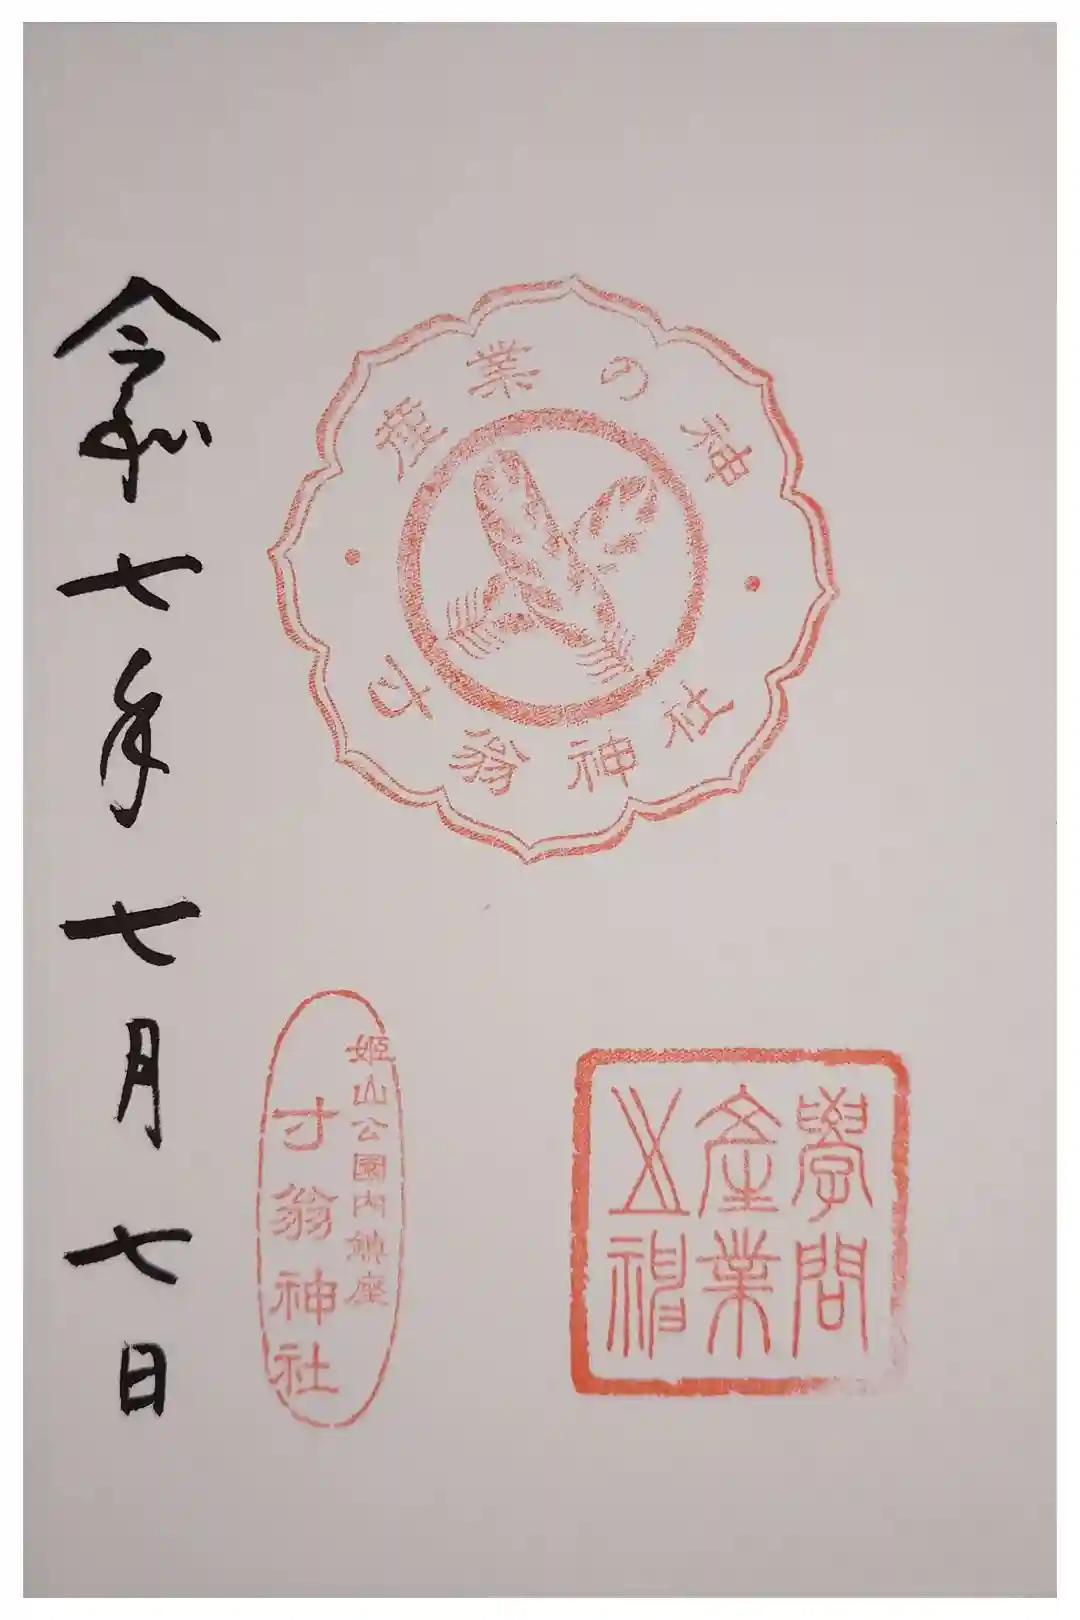 産業の神
寸翁神社
學問
産業
之神
姫山公園内鎮座
寸翁神社
令和七年七月七日